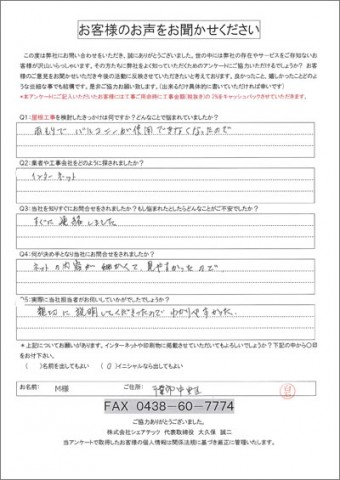 お客様のお声をお聞かせください
この度は弊社にお問い合わせをいただき、誠にありがとうございました。世の中には弊社の存在やサービスをご存知ないお
客様が沢山いらっしゃいます。その方たちに弊社をよく知っていただくためのアンケートにご協力いただけるでしょうか?お客
様のご意見をお聞かせいただき今後の活動に反映させていただきたいと考えております。良かったこと、嬉しかったことどのよ
うな些細な事でも結構です、是非ご協力お願い致します。(出来るだけ具体的に書いていただければ幸いです)
*本アンケートにご記入いただいたお客様には工事ご用命時にて工事金額(税抜き)の2%をキャッシュバックさせていただきます。
Q1:屋根工事を検討したきっかけは何ですか?どんなことで悩んでいましたか?
雨もりで バルコニーが使用できなくなったので
Q2:業者や工事会社をどのように探されましたか?
インターネット
Q3:当社を知りすぐにお問合せをされましたか?もし悩まれたとしたらどんなことがご不安でしたか?
すぐに連絡しました
Q4:何が決め手となり当社にお問合せをされましたか?
ネットの内容が細かくて、見やすかったので
Q5:実際に当社担当者がお伺いしていかがでしたでしょうか?
親切に説明してくださったので わかりやすかった。
*上記についてお願いがあります。インターネットや印刷物に掲載させていただいてもよろしいでしょうか?下記の中から○印
をお付け下さい。
( )名前を出してもよい (○)イニシャルなら出してもよい
お名前: M様 ご住所: 千葉市中央区
FAX 0438-60-7774
ご協力ありがとうございました。
株式会社シェアテック 代表取締役 大久保 誠二
当アンケートで取得したお客様の個人情報は関係法規に基づき厳正に管理いたします。